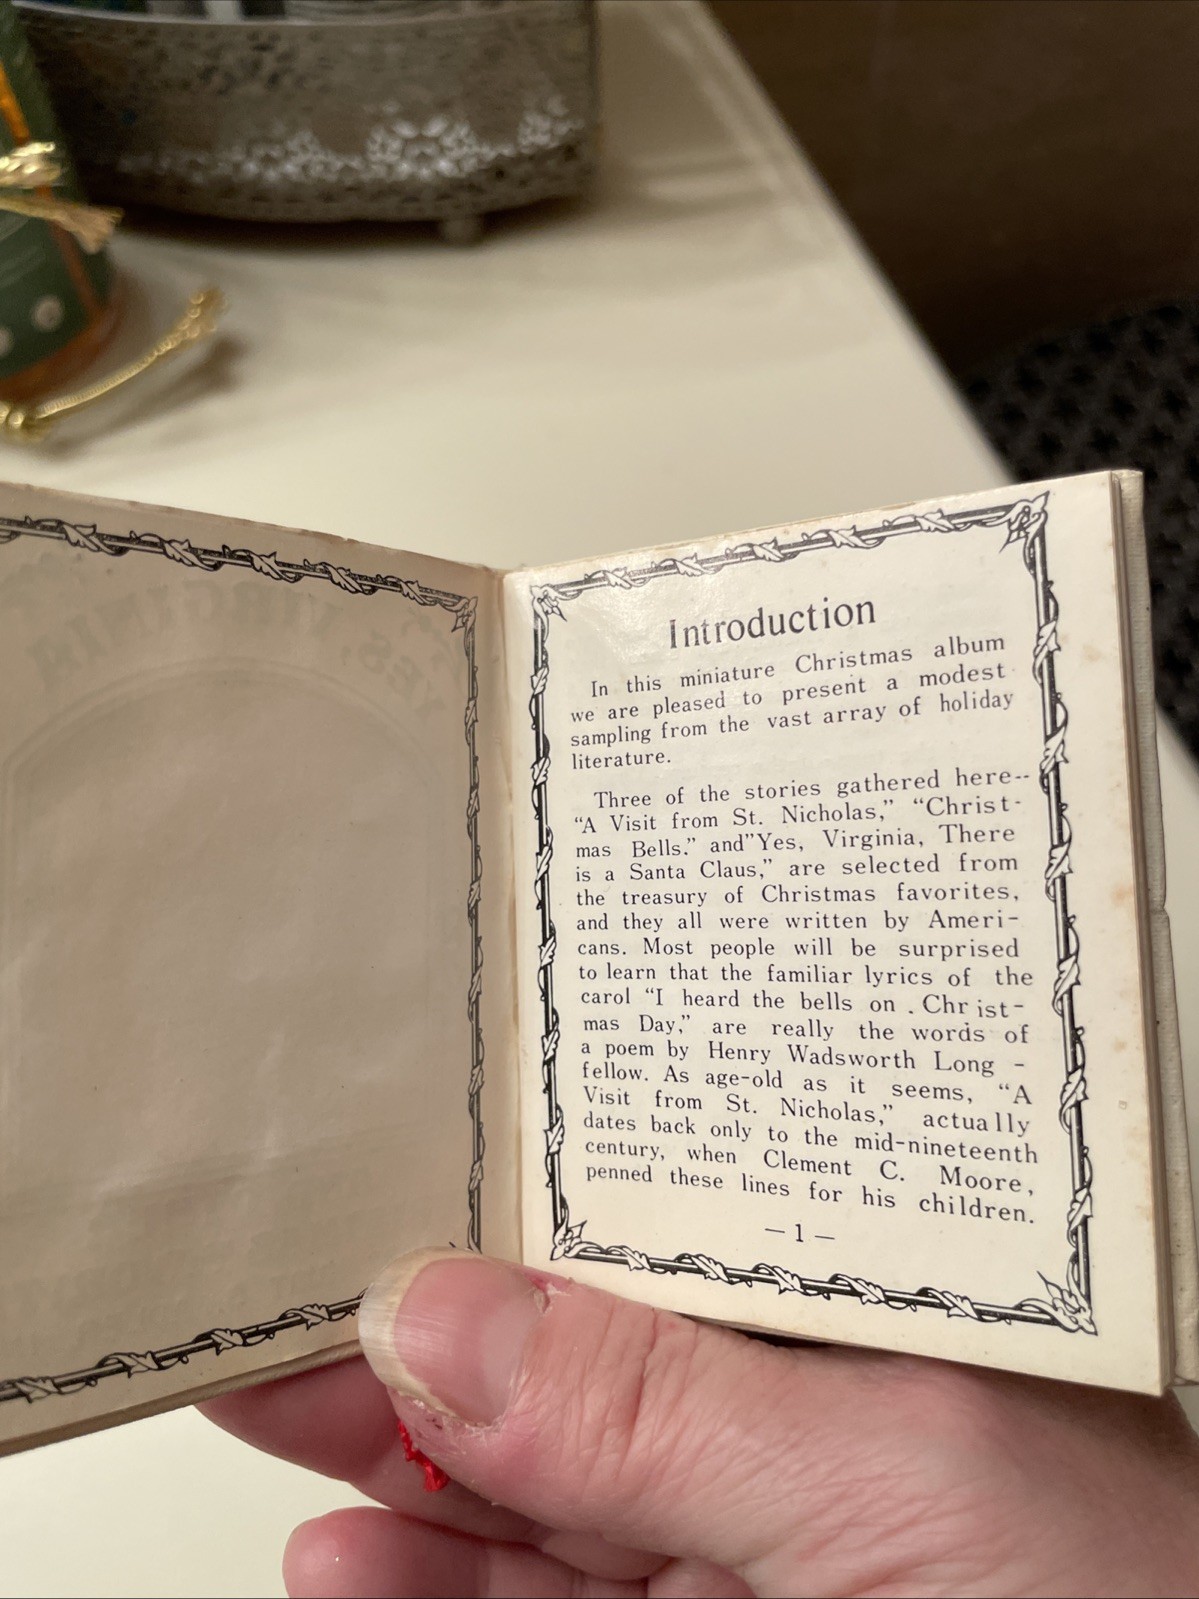 Introduction
In this miniature Christmas album
we are pleased to present a modest
sampling from the vast array of holiday
literature.
Three of the stories gathered here--
“A Visit from St. Nicholas,” “Christ-
mas Bells.” and”Yes, Virginia, There
is a Santa Claus,” are selected from
the treasury of Christmas favorites,
and they all were written by Ameri-
cans. Most people will be surprised
to learn that the familiar lyrics of the
carol “I heard the bells on . Christ-
mas Day,” are really the words of
a poem by Henry Wadsworth Long -
fellow. As age-old as it seems, “A
Visit from St. Nicholas,” actually
dates back only to the mid-nineteenth
century, when Clement C. Moore,
penned these lines for his children.
— 1 —